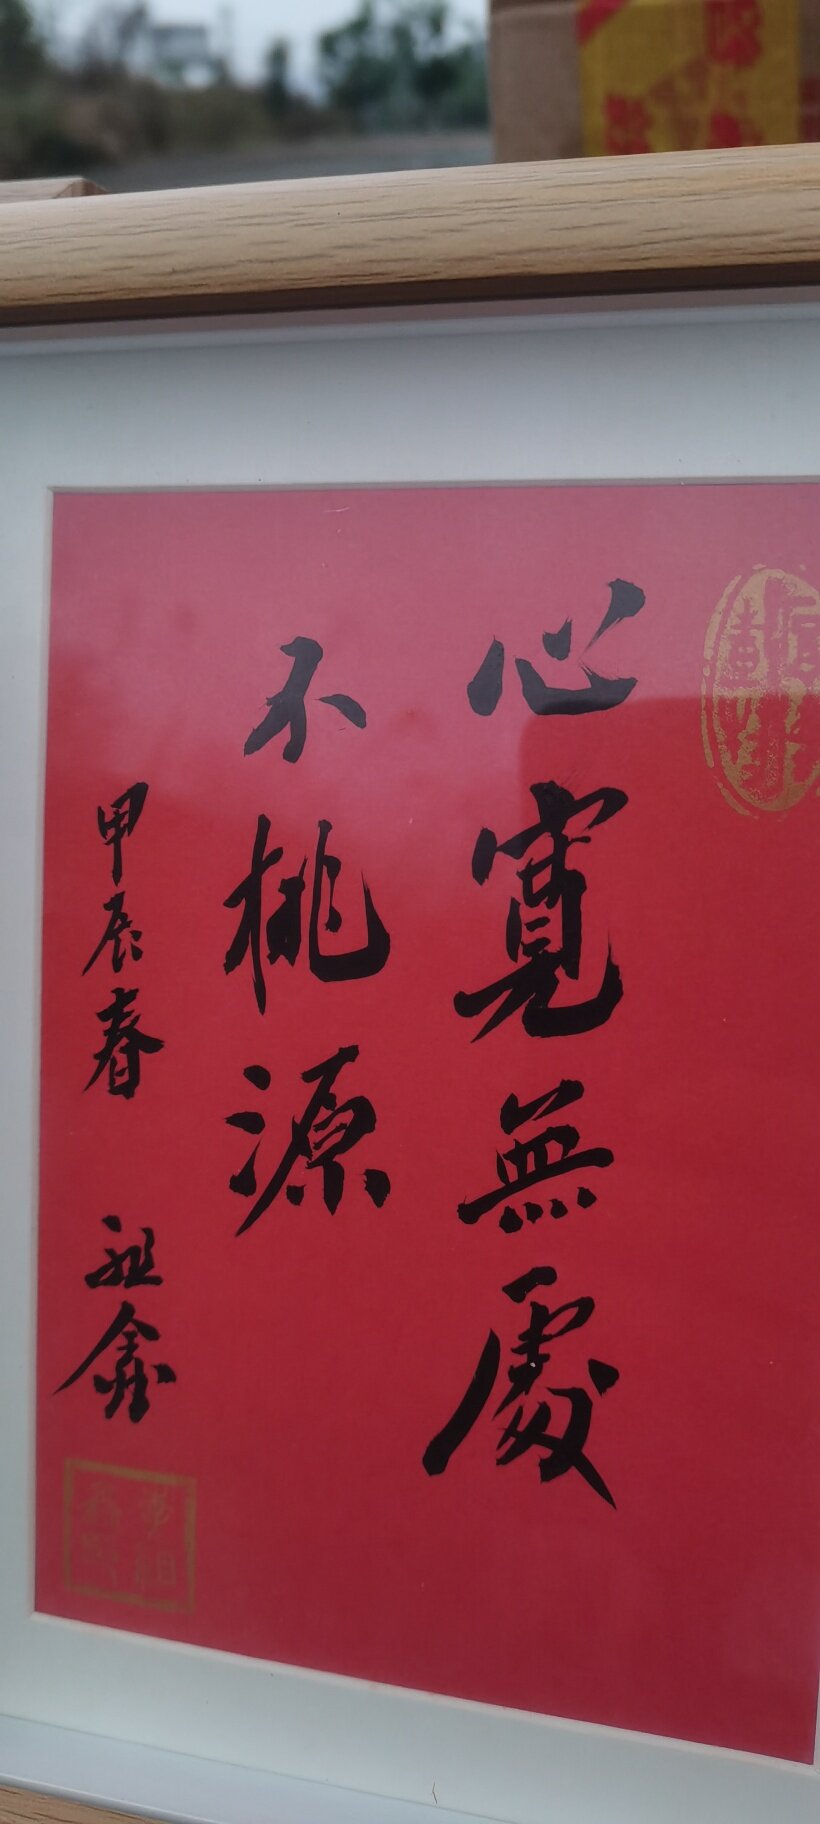 心寬無處
不桃源
甲辰春 祖鑫